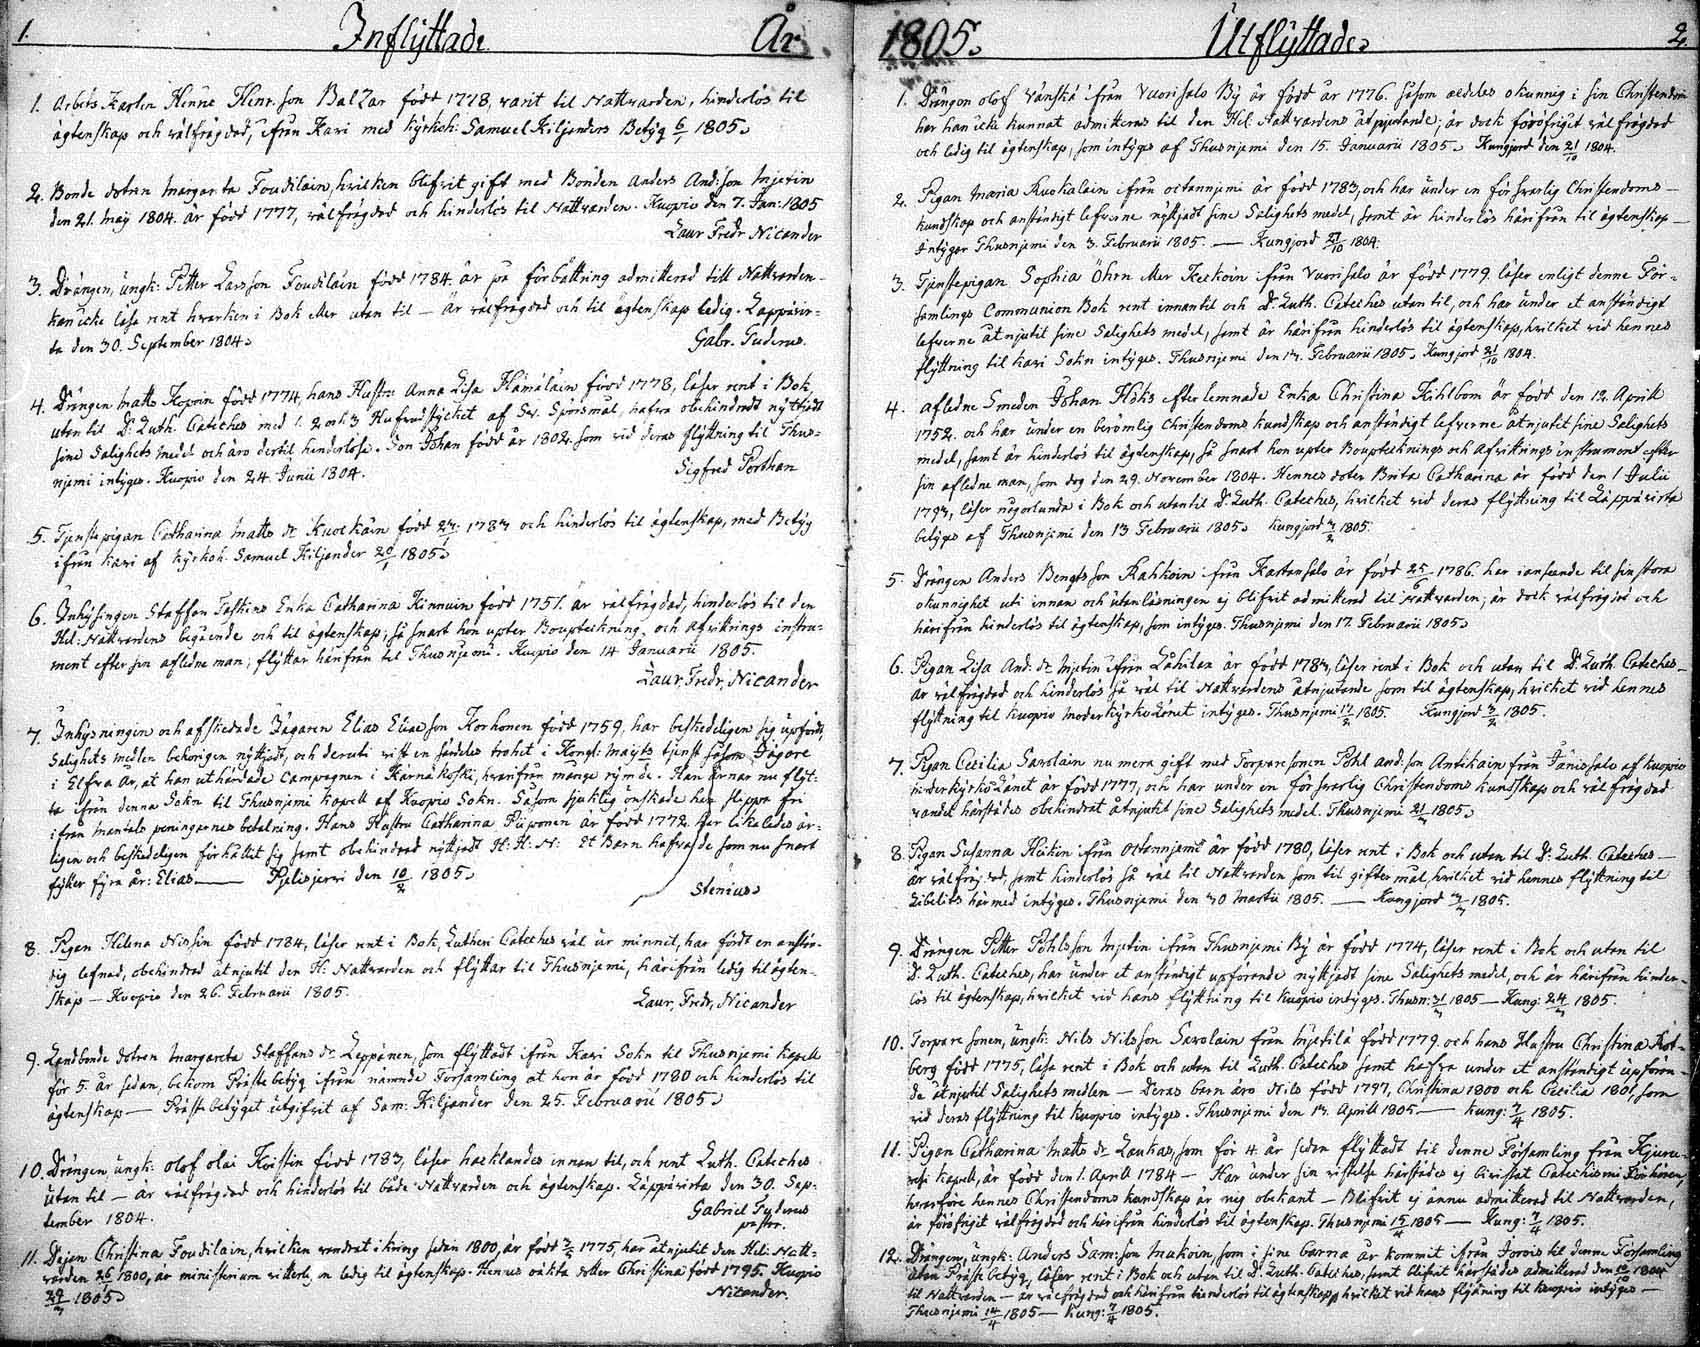 1. Inflÿttade År
1. Arbets Karlen Henne Henr. son Balzar född 1778, varit til Nattvarden, hinderlös til
ägtenskap och välfrägdad, ifrån Kavi med Kÿrkoh: Samuel Kiljanders Betÿg 6/1 1805.
2. Bonde dotren Margar:ta Foudilain, hvilken blifvit gift med Bonden Anders And:son Mjetin
den 21. Maÿ 1804. är född 1777, välfrägdad och hinderlös til Nattvarden. Kuopio den 7. Jan: 1805
Laur Fredr Nicander
3. Drängen, ungk: Petter Larsson Foudilain född 1784. är på förbättring admitterad till Nattvarden
kan icke läsa rent hvarken i Bok eller utan til — Är välfrägdad och til ägtenskap ledig. Lappävir=
ta den 30. September 1804.
Gabr. Tuderus.
4. Drängen Matts Koponin född 1774, hans Hustru Anna Lisa Hämäläin född 1778, läser rent i Bok
utan til D: Luth. Cateches med 1. 2 och 3 Hufvudstÿcket af Sv. Spörsmål, hafva obehindradt nÿttjadt
sine Salighets medel och äro dertil hinderlöse. Son Johan född år 1802. som vid deras flÿttning til Thus=
njemi intÿgas. Kuopio den 24 Junii 1804.
Sigfred Porthan
5. Tjenstepigan Catharina Matts dr Kuockain född 1787 och hinderlös til ägtenskap, med Betÿg
ifrån Kavi af Kÿrkoh. Samuel Kiljander 20/1 1805.
6. Inhÿsingen Staffan Taskins Enka Catharina Kinnuin född 1751. är välfrägdad, hinderlös til den
Hel: Nattvardens begående och til ägtenskap, så snart hon upter Bouptekning och afvittrings instru=
ment efter sin afledne man; flÿttar härifrån til Thusnjemi. Kuopio den 14 Januarii 1805.
Laur, Fredr, Nicander
7. Inhÿsningen och afskedade Jägaren Elias Eliae son Korhonen född 1759, har beskedeligen sig upfördt,
Salighets medlen behörigen nÿttjadt, och deruti vist en särdeles trohet i Kongl: Maÿts tjenst såsom Jägare
i Elfva År, at han uthärdade Campagnen i Kärnäkoski, hvarifrån månge rÿmde. Han ärnar nu flÿt=
ta ifrån denna Sokn til Thusnjemi Kapell af Kuopio Sokn. Såsom sjuklig önskade han slippa fri
ifrån mantals peningarnes betalning. Hans Hustru Catharina Piiponen är född 1772. har likaledes är=
ligen och beskedeligen förhållit sig samt obehindrad nÿttjadt H: H: N: Et Barn hafva de som nu snart
fÿller fÿra år: Elias — Pielisjervi den 10/2 1805.
Stenius
8. Pigan Helena Nissin född 1784, läser rent i Bok, Lutheri Cateches väl ur minnet, har fördt en anstän=
dig lefnad, obehindrad åtnjutit den H: Nattvarden och flÿttar til Thusnjemi, härifrån ledig til ägten=
skap — Kuopio den 26. Februarii 1805.
Laur, Fredr, Nicander
9. Landbonde dotren Margareta Staffans dr Leppänen, som flÿttadt ifrån Kavi Sokn til Thusnjemi Kapell
för 5. år sedan, bekom Präste betÿg ifrån nämnde Församling at hon är född 1780 och hinderlös til
ägtenskap — Präste betÿget utgifvit af Sam: Kiljander den 25. Februarii 1805.
10. Drängen ungk: Olof Olai Koistin född 1783, läser hacklandes innan til, och rent Luth. Cateches
utan til — är välfrägdad och hinderlös til både Nattvarden och ägtenskap. Läppävirta den 30. Sep=
tember 1804.
Gabriel Tuderus
pastor.
11. Dejan Christina Foudilain, hvilken vandrat ikring sedan 1800, är född 1775, har åtnjutit den Hel: Natt=
varden 1800, är ledig til ägtenskap. Hennes oäkta dotter Christina född 1795. Kuopio
1805
Nicander.
1805. Utflÿttade. 2.
1. Drängen Olof Vänskä ifrån Vuorisalo Bÿ är född år 1776. såsom aldeles okunnig i sin Christendom
har han icke kunnat admitteras til den Hel. Nattvardens åtnjutande; är dock föröfrigit välfrägdad
och ledig til ägtenskap, som intÿgas af Thusnjemi den 15. Januarii 1805. Kungjord den 21/10 1804.
2. Pigan Maria Ruokalain ifrån Octannjemi är född 1783, och har under en försvarlig Christendoms —
kundskap och anständigt lefverne nÿttjadt sine Salighets medel, samt är hinderlös härifrån til ägtenskap —
Intÿgar Thusnjemi den 3. Februarii 1805. — Kungjord 27/10 1804.
3. Tjenstepigan Sophia Öhrn eller Keckoin ifrån Vuorisalo är född 1779. läser enligt denne För=
samlings Communion Bok rent innantil och D: Luth. Cateches utan til, och har under et anständigt
lefverne åtnjutit sine Salighets medel, samt är härifrån hinderlös til ägtenskap, hvilket vid hennes
flÿttning til Kavi Sokn intÿges. Thusnjemi den 17. Februarii 1805. Kungjord 21/10 1804.
4. Afledne Smeden Johan Höks efterlemnade Enka Christina Kihlbom är född den 12. Aprill
1752. och har under en berömlig Christendoms kundskap och anständigt lefverne åtnjutit sine Salighets
medel, samt är hinderlös til ägtenskap, så snart hon upter Boupteknings och Afvittrings instrument efter
sin afledne man, som dog den 29. November 1804. Hennes doter Brita Catharina är född den 1 Julii
1793, läser någorlunda i Bok och utantil D: Luth. Cateches, hvilket vid deras flÿttning til Läppävirta
betÿges af Thusnjemi den 13 Februarii 1805. Kungjord 3/2 1805.
5. Drängen Anders Bengtsson Rahkoin ifrån Kastansalo är född 25/6 1786. har i anseende til sin stora
okunnighet uti innan och utanläsningen ej blifvit admitterad til Nattvarden; är dock välfrägdad och
härifrån hinderlös til ägtenskap, som intÿges. Thusnjemi den 17. Februarii 1805.
6. Pigan Lisa And: dr Mjetin ifrån är född 1783, läser rent i Bok och utan til D: Luth. Cateches —
är välfrägdad och hinderlös så väl til Nattvardens åtnjutande som til ägtenskap, hvilket vid hennes
flÿttning til Kuopio Moderkÿrko Länet intÿges. Thusnjemi 17/2 1805. Kungjord 3/2 1805.
7. Pigan Cecilia Savolain nu mera gift med Torparesonen Pohl And:son Antikain från Jänissalo af Kuopio
Moderkÿrko Länet är född 1777, och har under en försvarlig Christendoms kundskap och välfrägdad
vandel härstädes obehindrat åtnjutit sine Salighets medel. Thusnjemi 1805.
8. Pigan Susanna Heikin ifrån Octannjemi är född 1780, läser rent i Bok och utan til D: Luth. Cateches —
är välfrägdad, samt hinderlös så väl til Nattvarden som til giftermål, hvilket vid hennes flÿttning til
Libelits härmed intÿges. Thusnjemi den 30 Martii 1805. — Kungjord 1805.
9. Drängen Petter Pohlsson Mjetin ifrån Thusnjemi Bÿ är född 1774, läser rent i Bok och utan til
D: Luth. Cateches, har under et anständigt upförande nÿttjadt sine Salighets medel, och är härifrån hinder=
lös til ägtenskap, hvilket vid hans flÿttning til Kuopio intÿges. Thusn: 31/3 1805 — Kung: 24/3 1805.
10. Torpare sonen, ungk: Nils Nilsson Savolain från Mjetilä född 1779. och hans Hustru Christina
berg född 1775, läsa rent i Bok och utan til Luth. Cateches samt hafva under et anständigt upföran=
de åtnjutit Salighets medlen — Deras barn äro Nils född 1797, Christina 1800 och Cecilia 1801, som
vid deras flÿttning til Kuopio intÿges. Thusnjemi den 13. Aprill 1805 — Kung: 7/4 1805.
11. Pigan Catharina Matts dr Laukas, som för 4. år sedan flÿttadt til denne Församling från
vesi Kapell, är född den 1. Aprill 1784 — Har under sin vistelse härstädes ej bivistat Catechismi Förhören,
hvarföre hennes Christendoms kundskap är mig obekant — Blifvit ej ännu admitterad til Nattvarden,
är föröfrigit välfrägdad och härifrån hinderlös til ägtenskap. Thusnjemi 15/4 1805 — Kung: 7/4 1805.
12. Drängen, ungk: Anders Sam:son Makoin, som i sine barna år kommit ifrån Jorois til denne Församling
utan Präste betÿg, läser rent i Bok och utan til D: Luth. Cateches, samt blifvit härstädes admitterad den 1804
til Nattvarden — är välfrägdad och härifrån hinderlös til ägtenskap, hvilket vid hans flÿttning til Kuopio intÿges —
Thusnjemi 14/4 1805 — Kung: 7/4 1805.